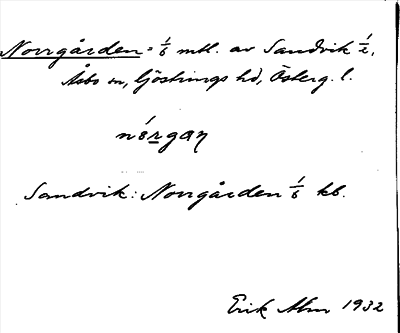 Norrgården = 1/6 mtl. av Sandvik 1/2,
Åsbo sn, Göstrings hd, Österg. l.
Sandvik: Norrgården 1/6 kb.
Erik Alm 1932